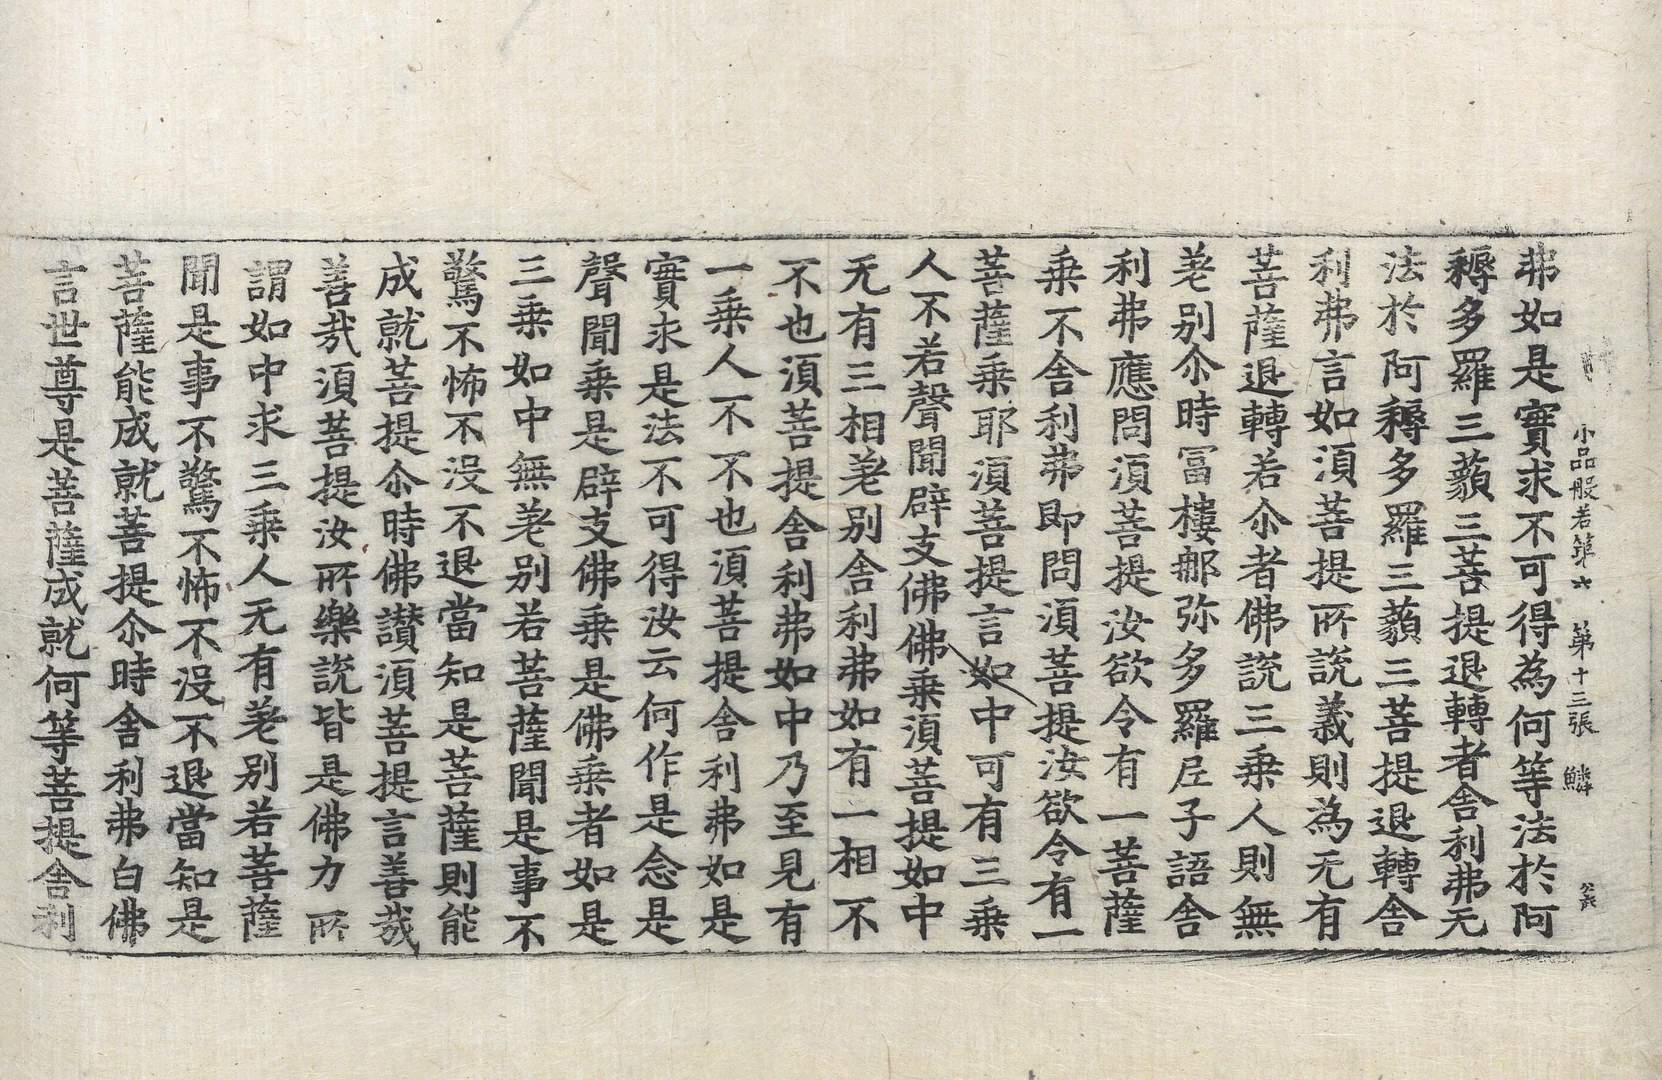 小品般若第六　第十三張　鱗
弗如是實求不可得為何等法於阿
耨多羅三藐三菩提退轉者舍利弗无
法於阿耨多羅三藐三菩提退轉舍
利弗言如湏菩提所說義則為无有
菩薩退轉若尒者佛說三乗人則無
差別尒時冨樓那弥多羅𡰱子語舍
利弗應問湏菩提汝欲令有一菩薩
乗不舍利弗即問湏菩提汝欲令有一
菩薩乗耶湏菩提言如中可有三乗
人不若聲聞辟支佛佛乗湏菩提如中
无有三相差別舍利弗如有一相不
不也湏菩提舍利弗如中乃至見有
一乗人不不也湏菩提舍利弗如是
實求是法不可得汝云何作是念是
聲聞乗是辟支佛乗是佛乗者如是
三乗如中無差別若菩薩聞是事不
驚不怖不沒不退當知是菩薩則能
成就菩提尒時佛讃湏菩提言善㢤
善㢤湏菩提汝所樂說皆是佛力所
謂如中求三乗人无有差別若菩薩
聞是事不驚不怖不沒不退當知是
菩薩能成就菩提尒時舍利弗白佛
言世尊是菩薩成就何等菩提舍利